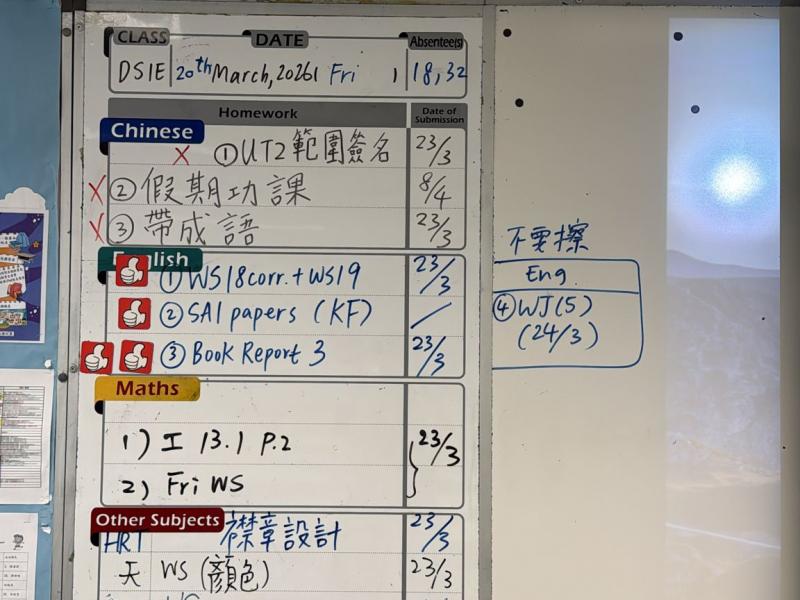 CLASS DATE Absentee(s)
DS1E 20th March, 2026 Fri 18, 32
Homework Date of Submission
Chinese
① UT2 範圍簽名 23/3
② 假期功課 8/4
③ 帶成語 23/3
English
① WS18corr. + WS19 23/3
② SA1 papers (KF) /
③ Book Report 3 23/3
Maths
1) 工 13.1 P.2 23/3
2) Fri WS
Other Subjects
HRT 襟章設計 23/3
天 WS (顏色) 23/3
不要擦
Eng.
④ WJ(5)
(24/3)